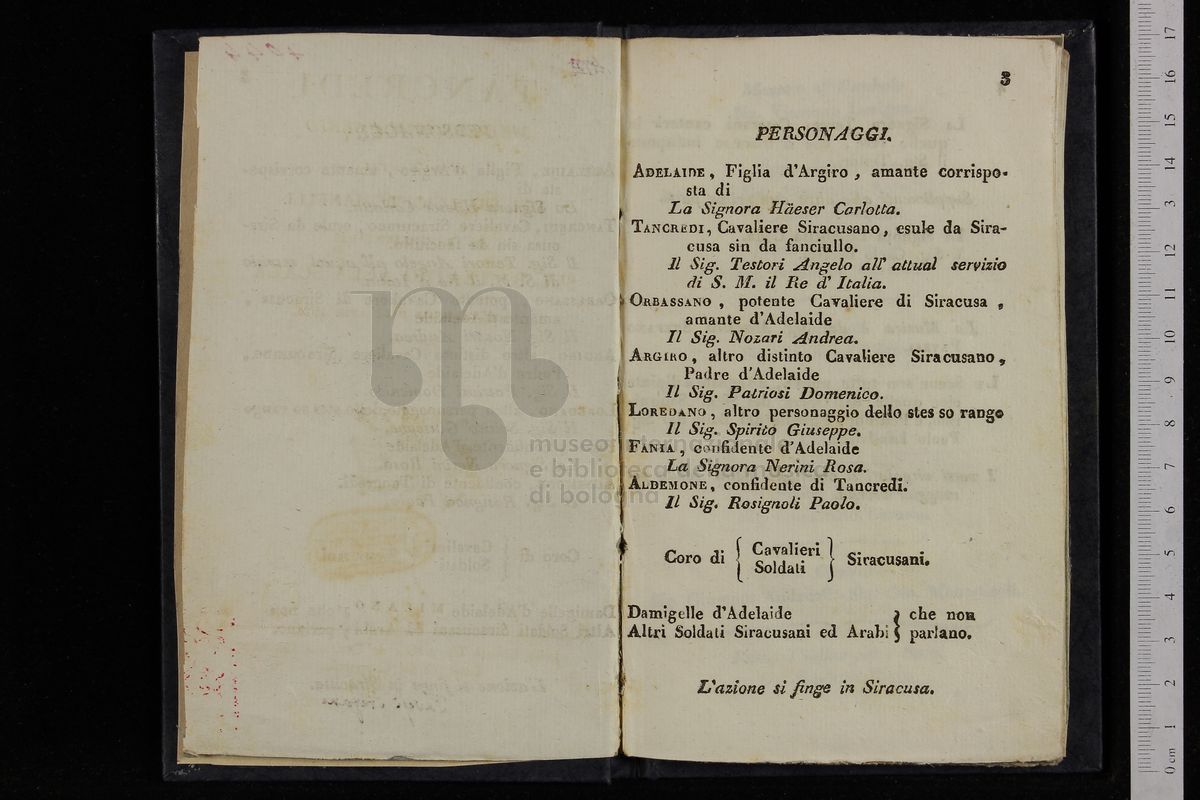 3
PERSONAGGI.
ADELAIDE, Figlia d'Argiro, amante corrispo-
sta di
La Signora Häeser Carlotta.
TANCREDI, Cavaliere Siracusano, esule da Sira-
cusa sin da fanciullo.
Il Sig. Testori Angelo all' attual servizio
di S. M. il Re d' Italia.
ORBASSANO, potente Cavaliere di Siracusa,
amante d'Adelaide
Il Sig. Nozari Andrea.
ARGIRO, altro distinto Cavaliere Siracusano,
Padre d'Adelaide
Il Sig. Patriosi Domenico.
LOREDANO, altro personaggio dello stes so rango
Il Sig. Spirito Giuseppe.
FANIA, confidente d'Adelaide
La Signora Nerini Rosa.
ALDEMONE, confidente di Tancredi.
Il Sig. Rosignoli Paolo.
Coro di { Cavalieri Soldati } Siracusani.
Damigelle d'Adelaide } che non
Altri Soldati Siracusani ed Arabi } parlano.
L'azione si finge in Siracusa.
museo internazionale
e biblioteca della musica
di bologna
0 cm 1 2 3 4 5 6 7 8 9 10 11 12 13 14 15 16 17